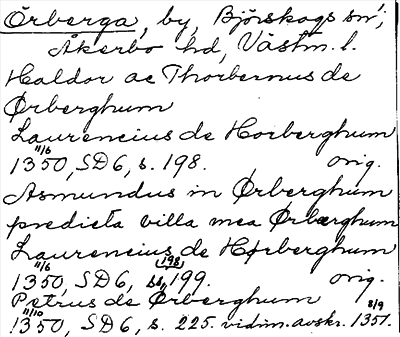 Örberga, by, Björskogs sn;
Åkerbo hd, Västm. l.
Haldor ac Thorbernus de
Ørberghum
Laurencius de Horberghum
11/6
1350, SD 6, s. 198. orig.
Asmundus in Ørberghum
predicta villa mea Ørberghum
Laurencius de Hørberghum
11/6 198
1350, SD 6, s. 199. orig.
Petrus de Ørberghum
11/10 8/9
1350, SD 6, s. 225. vidim. avskr. 1351.